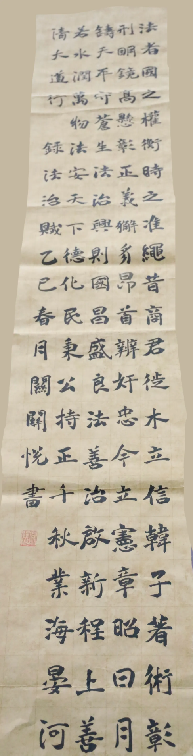 法者國之權衡時之准繩昔商君徙木立信韓子著術彰
刑明鏡高懸彰正義獬豸昂首辨奸忠今立憲章昭日月
鑄天平守蒼生法治興則國昌盛良法善治啟新程上善
若水潤萬物法安天下德化民秉公持正千秋業海晏河
清大道行 錄法治賦乙巳春月關關悅書